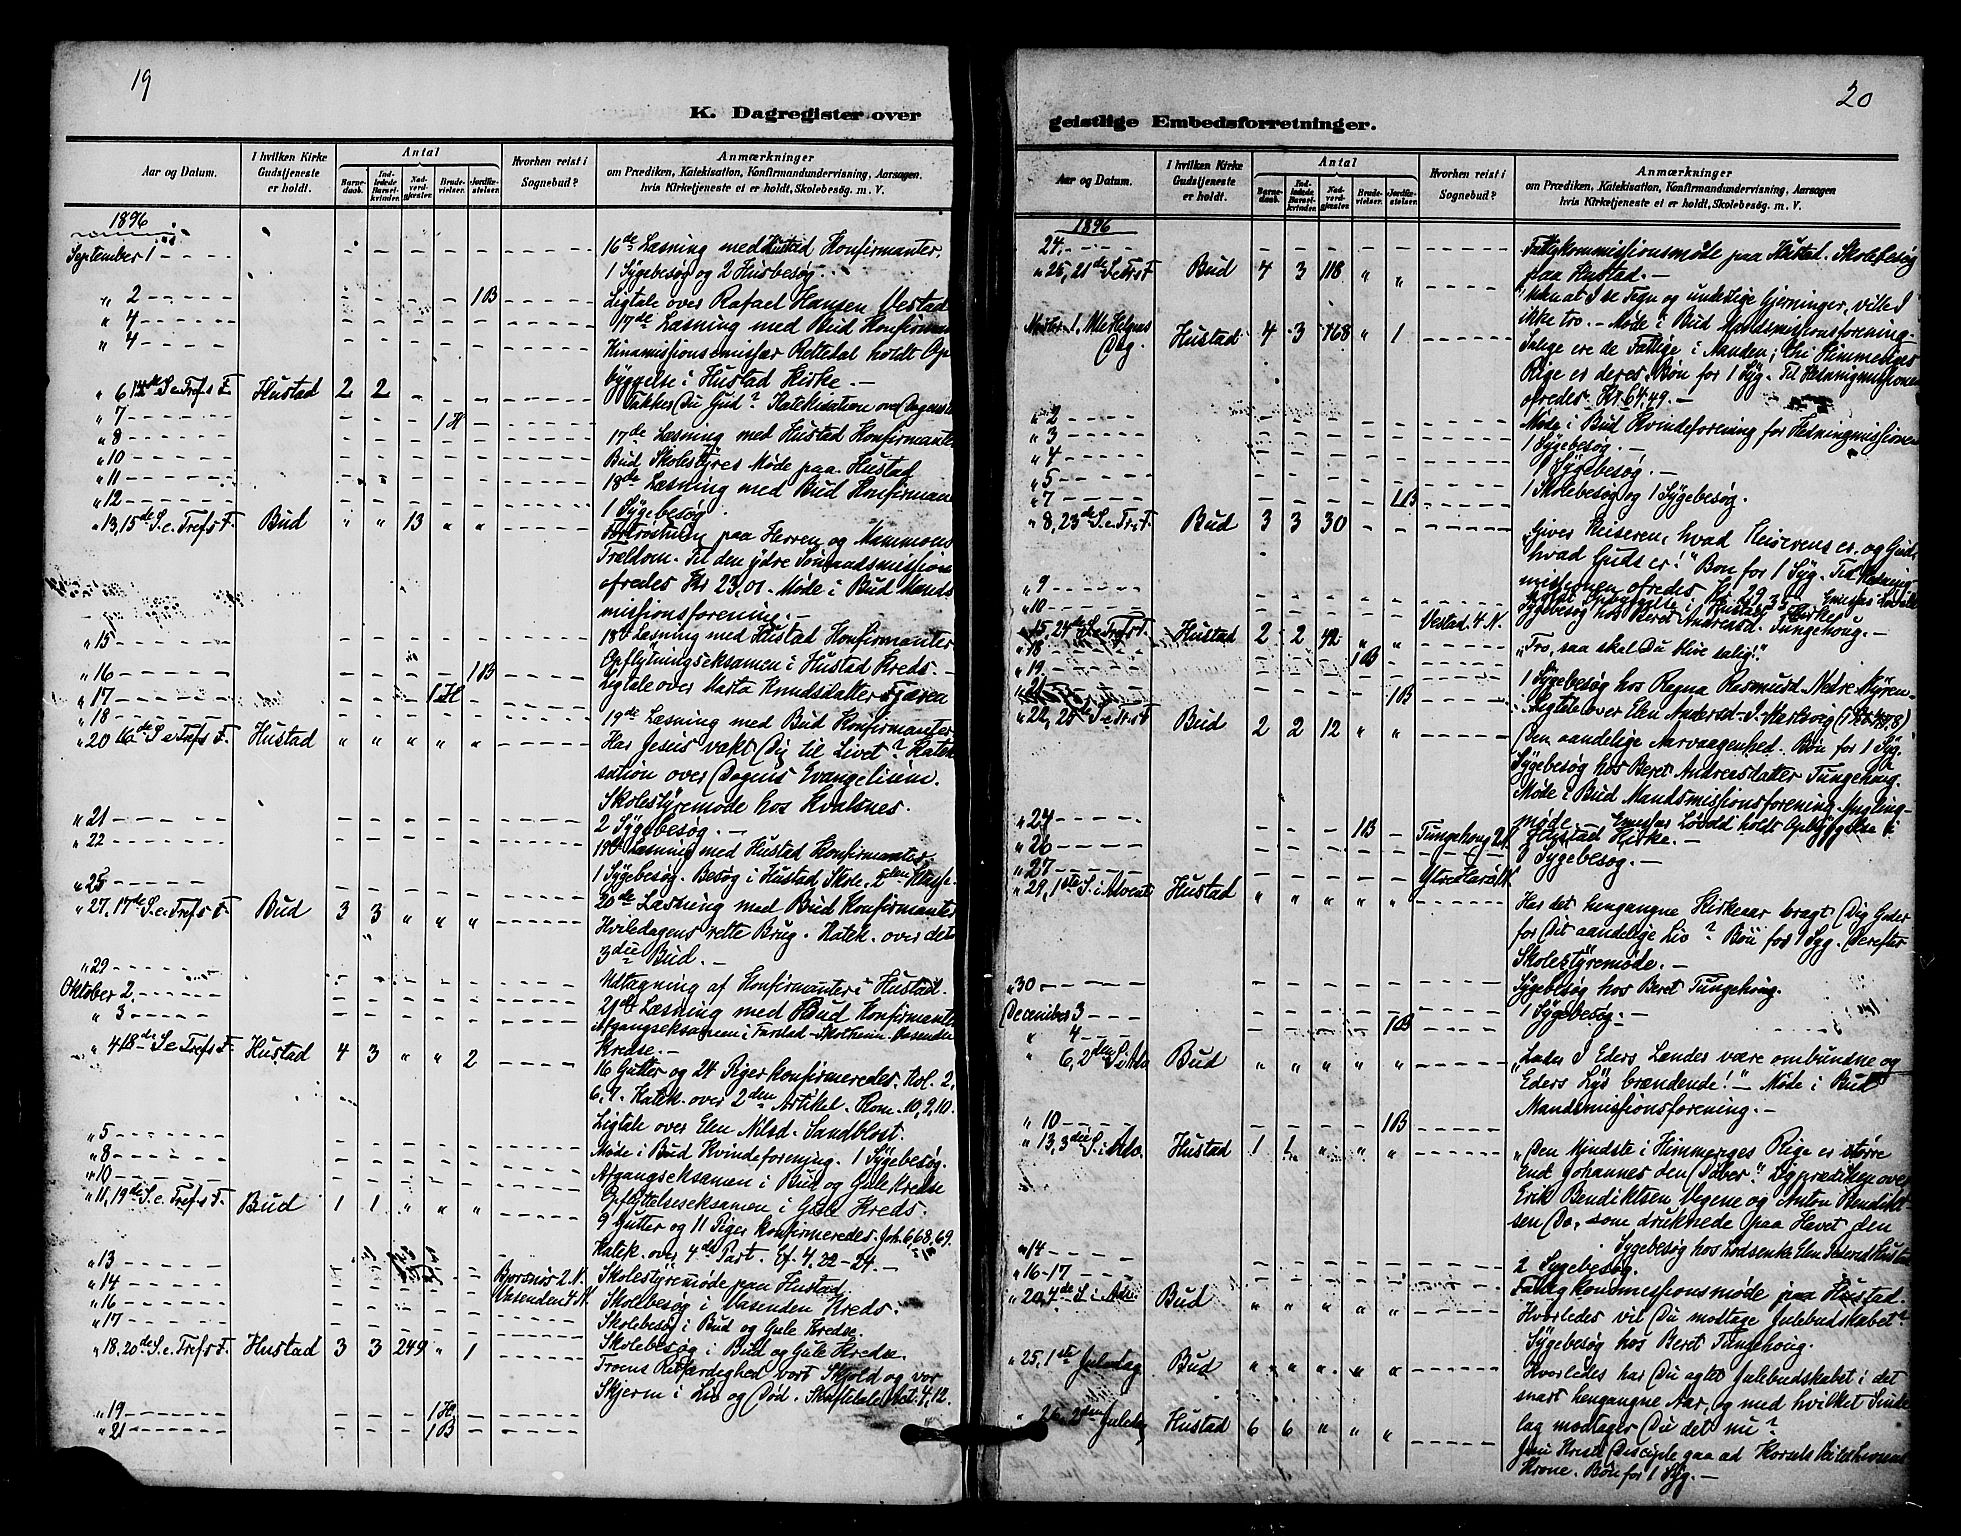 19
K. Dagregister over
Aar og Datum.
I hvilken Kirke Gudstjeneste er holdt.
Antal
Barnedaab.
Indledede Barselkvinder.
Nadverdgjæster.
Brudevielser.
Jordfæstelser.
Hvorhen reist i Sognebud?
Anmærkninger
om Prædiken, Katekisation, Konfirmandundervisning, Aarsagen,
hvis Kirketjeneste ei er holdt, Skolebesøg. m. V.
1896
September 1
16de Læsning med Hustad Konfirmanter.
1 Sygebesøg og 2 Husbesøg.
" 2 1B
Ligtale over Rafael Hansen Vestad
" 4
17de Læsning med Bud Konfirman
" 4
Kinamissionsemissær Rettedal holdt Op
byggelse i Hustad Kirke. —
" 6 14de S. e. Tref. F. Hustad 2 2
Takker Du Gud? Katekisation over Dagens
" 7 1H
" 8
17de Læsning med Hustad Konfirmanter
" 10
Bud Skolestyres Møde paa Hustad
" 11
18de Læsning med Bud Konfirman
" 12
1 Sygebesøg.
" 13, 15de S. e. Tref. F. Bud " " 13 " "
Fortrøstning paa Herren og Mammons
Trældom. Til den ydre Sømandsmission
ofredes Kr 23,01. Møde i Bud Mands
missionsforening. —
" 15
18de Læsning med Hustad Konfirmanter
Opflytningseksamen i Hustad Kreds. —
" 16 1B
Ligtale over Marta Knudsdatter
" 17 1H
" 18
19de Læsning med Bud Konfirmanter
" 20 16de S. e. Tref. F. Hustad " " " " "
Har Jesus vakt Dig til Livet? Kateki
sation over Dagens Evangelium.
Skolestyremøde hos Kvalsnes.
" 21
2 Sygebesøg. —
" 22
19de Læsning med Hustad Konfirmanter
1 Sygebesøg. Besøg i Hustad Skole, 2den Klasse.
" 25
20de Læsning med Bud Konfirmanter
" 27, 17de S. e. Tref. F. Bud 3 3 " " "
Hviledagens rette Brug. Katek. over det
3die Bud. —
" 29
Udtagning af Konfirmanter i Hustad.
Oktober 2
21de Læsning med Bud Konfirmanter
" 3
Afgangseksamen i Farstad
Kredse. —
" 4 18de S. e. Tref. F. Hustad 4 3 " " 2
16 Gutter og 24 Piger konfirmeredes. Kol. 2,
6, 7. Katek. over 2den Artikel. Rom. 10, 9, 10.
Ligtale over Elen Nilsd. Sandblost.
" 5
Møde i Bud Kvindeforening. 1 Sygebesøg.
" 8
Afgangseksamen i Bud og Gule Kredse
" 10
Opflyttelseseksamen i Gule Kreds.
" 11, 19de S. e. Tref. F. Bud 1 1 " " "
9 Gutter og 11 Piger konfirmeredes. Joh. 6, 68, 69.
Katek. over 4de Part. Ef. 4, 22–24. —
" 13
Skolestyremøde paa Hustad
" 14 Bjørnør 2 N.
Skolebesøg i Vasenden Kreds.
" 16 Vasenden 4 N.
Skolebesøg i Bud og Gule Kredse.
" 17
Skolebesøg i Bud og Gule Kredse.
" 18, 20de S. e. Tref. F. Hustad 3 3 249 " 1
Troens Retfærdighed vort Skjold og vor
Skjerm i Liv og Død. Skriftetale Act. 4, 12.
" 19 1H
" 21 1B
20
geistlige Embedsforretninger.
Aar og Datum.
I hvilken Kirke Gudstjeneste er holdt.
Antal
Barnedaab.
Indledede Barselkvinder.
Nadverdgjæster.
Brudevielser.
Jordfæstelser.
Hvorhen reist i Sognebud?
Anmærkninger
om Prædiken, Katekisation, Konfirmandundervisning, Aarsagen
hvis Kirketjeneste ei er holdt, Skolebesøg. m. V.
1896
24.
Fattigkommissionsmøde paa Hustad. Skolebesøg
paa Hustad. —
" 25, 21de S. e. Tr. F. Bud 4 3 118 " "
Uden at I se Tegn og underlige Gjerninger, ville I
ikke tro. — Møde i Bud Mandsmissionsforening
Novbr. 1, Alle Helgens Dag. Hustad 4 3 168 " 1
Salige ere de Fattige i Aanden; thi Himmeriges
Rige er deres. Bøn for 1 Syg. Til Hedningmissionen
ofredes Kr. 64,49. —
" 2
Møde i Bud Kvindeforening for Hedningmissionen
" 3
1 Sygebesøg. —
" 4
1 Sygebesøg. —
" 5
1 Skolebesøg og 1 Sygebesøg.
" 7 1B
" 8, 23de S. e. Tr. F. Bud 3 3 30 " "
„Giver Keiseren, hvad Keiserens er, og Gud,
hvad Guds er!" Bøn for 1 Syg. Til Hedning
missionen ofredes Kr. 29,35.
" 9
holdt Opbyggelse i Hustad Kirke
" 10 Vestad 4 N.
Sygebesøg hos Beret Andreasd. Tungehoug. —
" 15, 24de S. e. Tref. F. Hustad 2 2 42 " "
„Tro, saa skal Du blive salig!"
" 18 1B
" 19
1 Sygebesøg hos Ragna Rasmusd. Nedre Myren
" 21 1B
Ligtale over Elen Andersd.
" 22, 25de S. e. Tr. F. Bud 2 2 12 " "
Den aandelige Aarvaagenhed. Bøn for 1 Syg.
Sygebesøg hos Beret Andreasdatter Tungehoug.
Møde i Bud Mandsmissionsforening. Yngling
møde. holdt Opbyggelse i
" 24 1B
Hustad Kirke. —
" 26 Tungehoug 2 N.
1 Sygebesøg. —
" 27
" 29, 1ste S. i Advent Hustad " " " " "
Har det hengangne Kirkeaar bragt Dig Goder
for Dit aandelige Liv? Bøn for 1 Syg. Derefter
Skolestyremøde. —
" 30
Sygebesøg hos Beret Tungehoug.
December 3
1 Sygebesøg. —
" 4 1B
" 6, 2den S. i Adv. Bud " " " " "
„Lader I Eders Lænder være ombundne og
Eders Lys brændende!" — Møde i Bud
Mandsmissionsforening. —
" 10 1B
" 13, 3die S. i Adv. Hustad 1 1 " " "
„Den Mindste i Himmeriges Rige er større
End Johannes den Døber." Ligprædiken over
Erik Bendiktsen Vegene og Anton Bendikt
sen Do, som druknede paa Havet den
" 14
Sygebesøg hos Lodsenke Elen
2 Sygebesøg.
" 16–17
Fattigkommissionsmøde paa Hustad.
" 20, 4de S. i Adv. Bud " " " " "
Hvorledes vil Du modtage Julebudskabet?
Sygebesøg hos Beret Tungehoug.
" 25, 1ste Juledag Bud " " " " "
Hvorledes har Du agtet Julebudskabet i det
snart hengangne Aar, og med hvilket Sinde
lag modtager Du det nu?
" 26, 2den Juledag Hustad 6 6 " " "
Jesu Kristi Disciple gaa ad Korsets Vei til Livsens
Krone. Bøn for 1 Syg. —